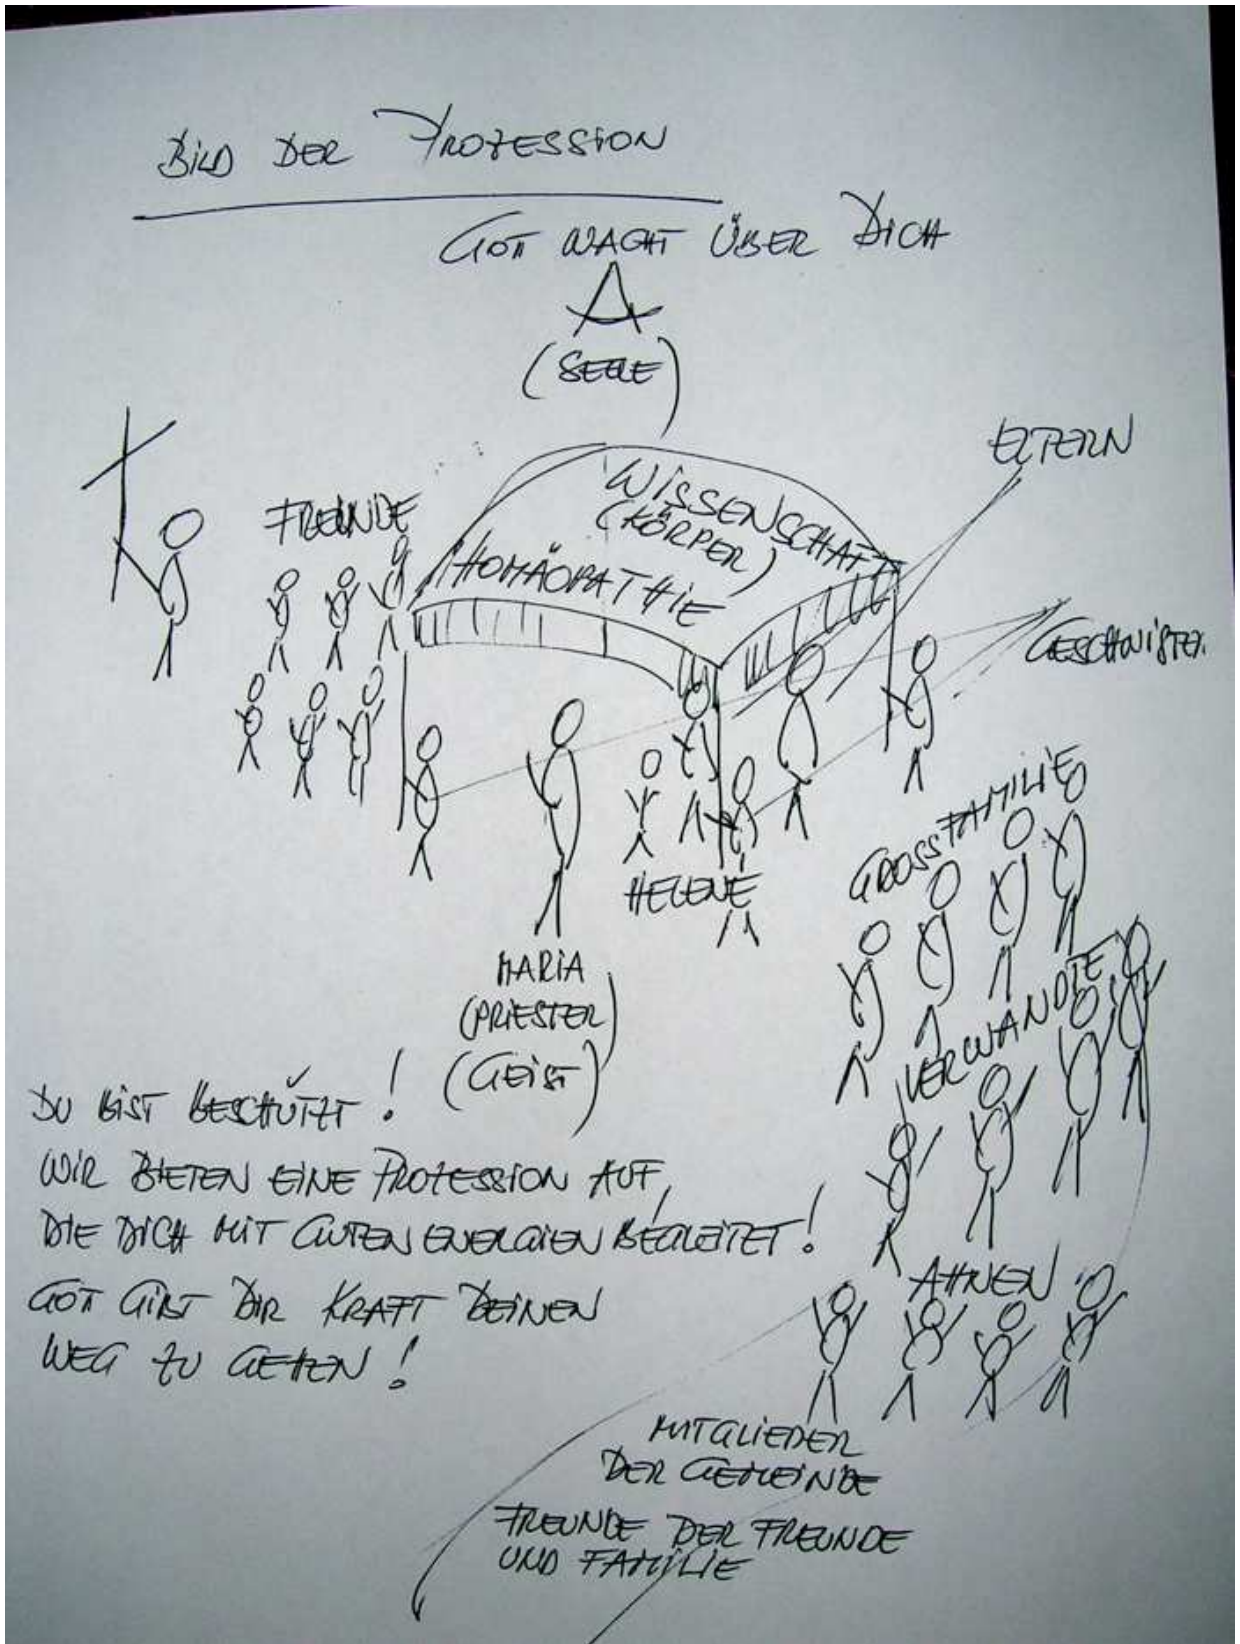 BILD DER PROZESSION
GOTT WACHT ÜBER DICH
(SEELE)
ELTERN
FREUNDE
WISSENSCHAFT
(KÖRPER)
HOMÄOPATHIE
GESCHWISTER
GROSSFAMILIE
HELENE
MARIA
(PRIESTER)
(GEIST)
VERWANDTE
DU BIST BESCHÜTZT!
WIR BIETEN EINE PROZESSION AUF,
DIE DICH MIT GUTEN ENERGIEN BEGLEITET!
GOTT GIBT DIR KRAFT DEINEN
WEG ZU GEHEN!
AHNEN
MITGLIEDER
DER GEMEINDE
FREUNDE DER FREUNDE
UND FAMILIE